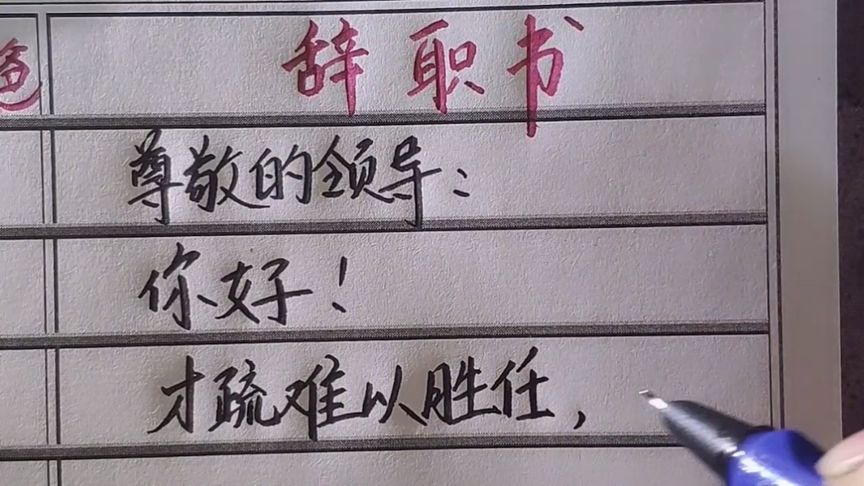 辞职书
尊敬的领导：
你好！
才疏难以胜任，